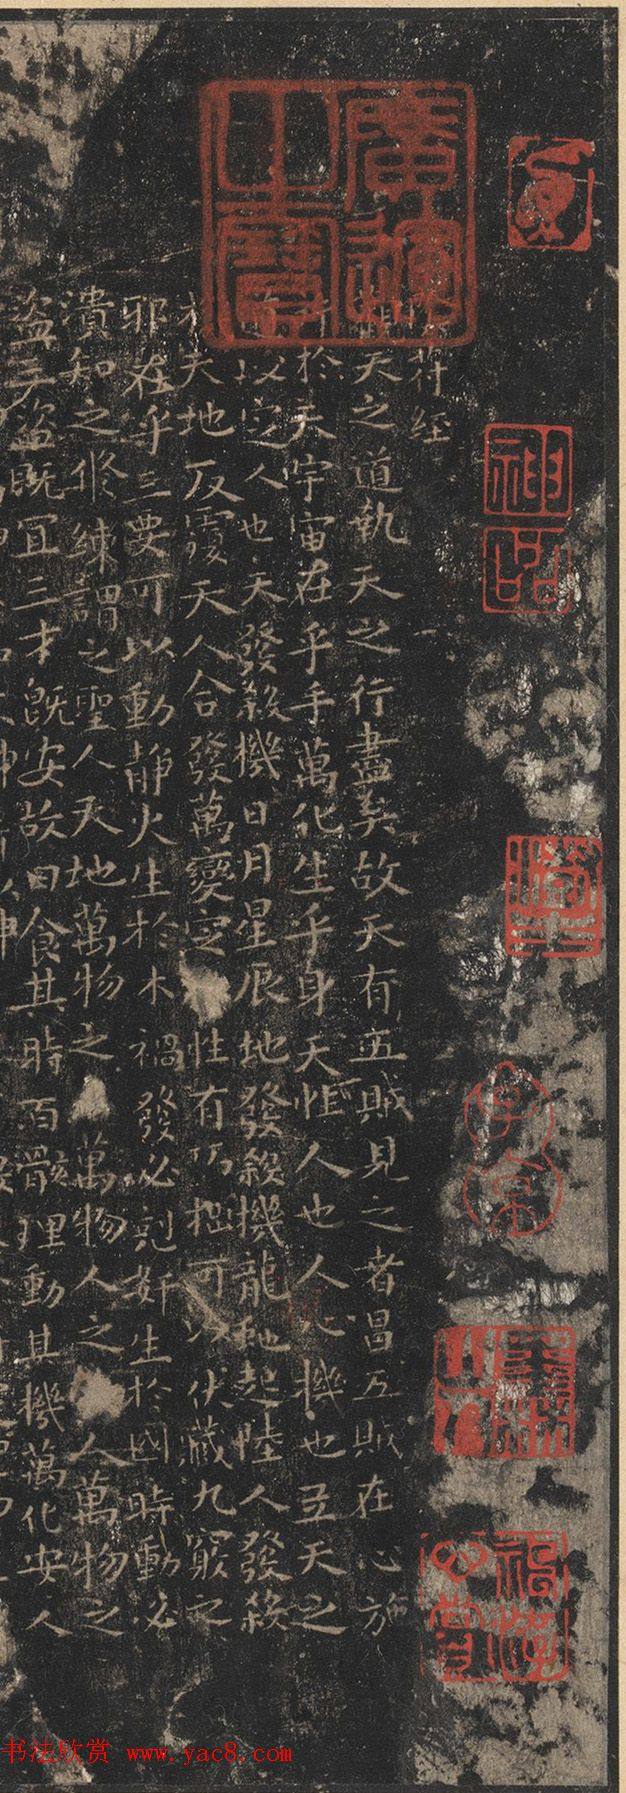 廣運之寶
神品
子京
墨林山人
符經
天之道執天之行盡矣故天有五賊見之者昌五賊在心施
於天宇宙在乎手萬化生乎身天性人也人心機也立天之
以定人也天發殺機日月星辰地發殺機龍虵起陸人發殺
機天地反覆天人合發萬變定性有巧拙可以伏藏九竅之
邪在乎三要可以動靜火生於木禍發必剋姧生於國時動必
潰知之修練謂之聖人天地萬物之萬物人之人萬物之
盜三盜既宜三才既安故曰食其時百骸理動其機萬化安人
书法欣赏 www.yac8.com